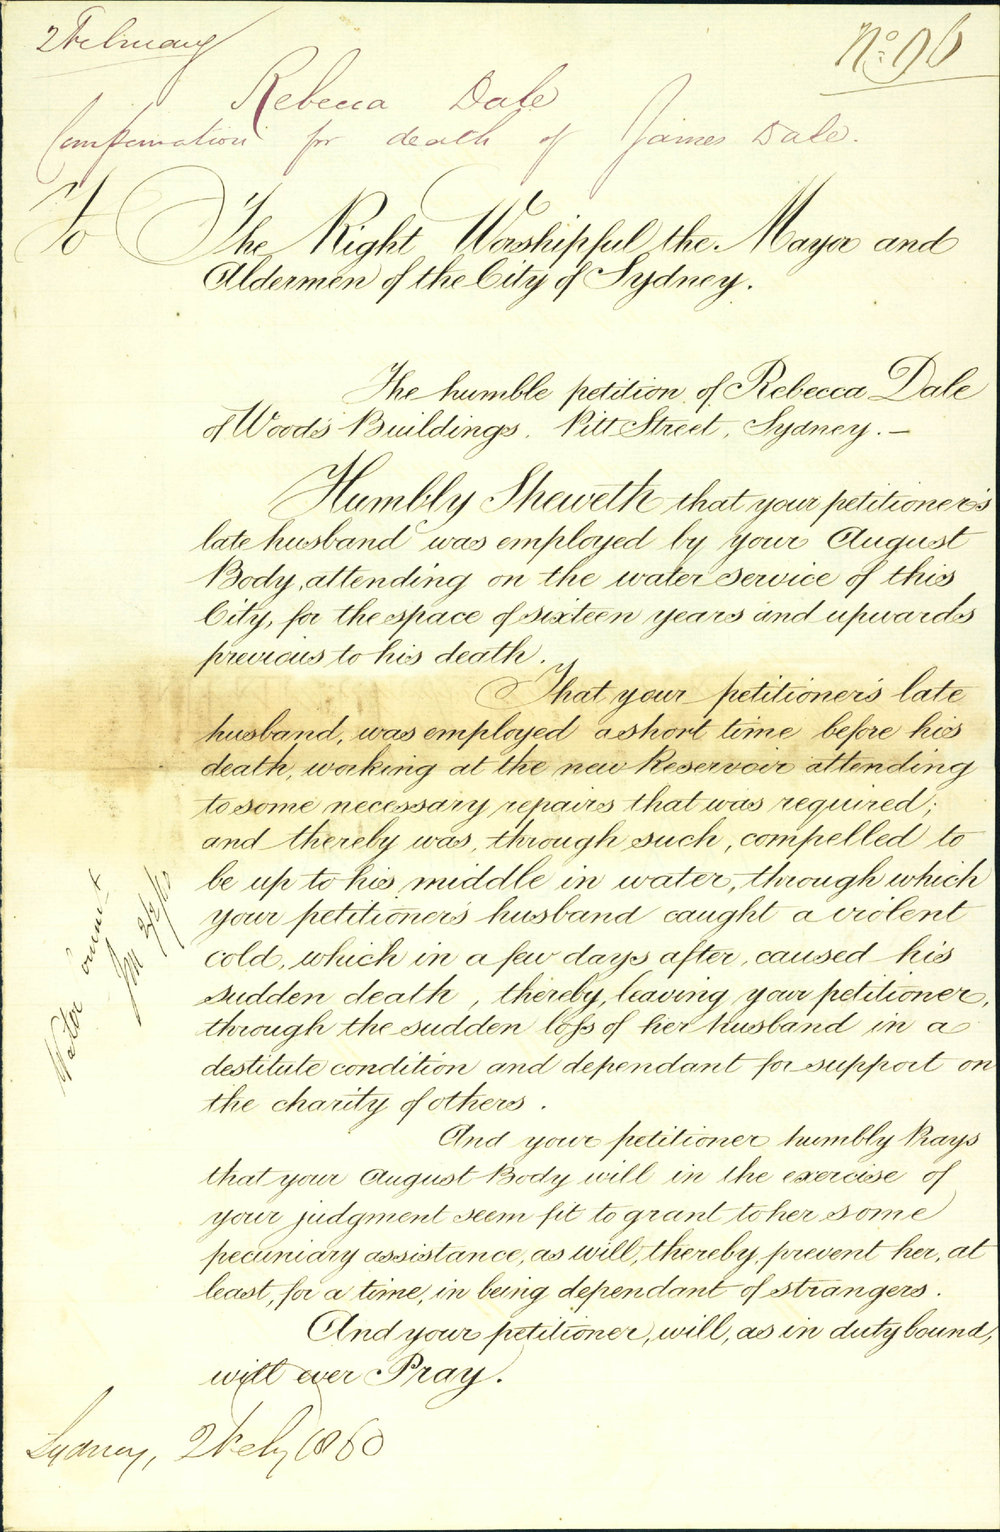 2 February
No. 96
Rebecca Dale
Compensation for death of James Dale.
To The Right Worshipful the Mayor and
Aldermen of the City of Sydney.
The humble petition of Rebecca Dale
of Woods Buildings, Pitt Street, Sydney.—
Humbly Sheweth that your petitioner's
late husband was employed by your August
Body, attending on the water service of this
City, for the space of sixteen years and upwards
previous to his death.
That your petitioner's late
husband, was employed a short time before his
death, working at the new Reservoir attending
to some necessary repairs that was required;
and thereby was, through such, compelled to
be up to his middle in water, through which
your petitioner's husband caught a violent
cold, which in a few days after, caused his
sudden death, thereby, leaving your petitioner,
through the sudden loss of her husband in a
destitute condition and dependant for support on
the charity of others.
And your petitioner humbly Prays
that your August Body will in the exercise of
your judgment seem fit to grant to her some
pecuniary assistance, as will, thereby, prevent her, at
least, for a time, in being dependant of strangers.
And your petitioner, will, as in duty bound,
will ever Pray.
Sydney, 2 Feby 1860
Water Commt
2/2/60